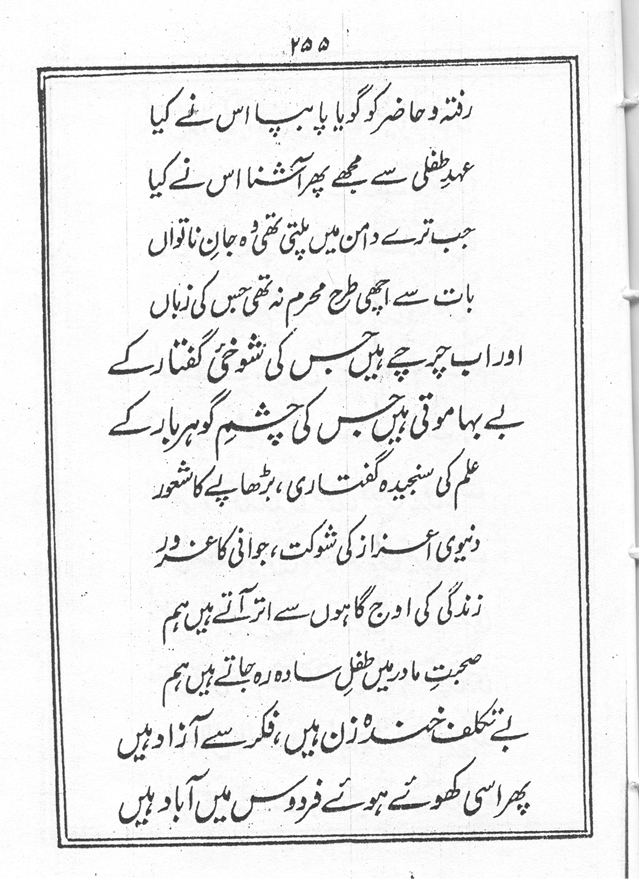 ۲۵۵
رفتہ و حاضر کو گویا پا بپا اس نے کیا
عہدِ طفلی سے مجھے پھر آشنا اس نے کیا
جب ترے دامن میں پلتی تھی وہ جانِ ناتواں
بات سے اچھی طرح محرم نہ تھی جس کی زباں
اور اب چرچے ہیں جس کی شوخئ گفتار کے
بے بہا موتی ہیں جس کی چشمِ گوہربار کے
علم کی سنجیدہ گفتاری، بڑھاپے کا شعور
دنیوی اعزاز کی شوکت، جوانی کا غرور
زندگی کی اوج گاہوں سے اتر آتے ہیں ہم
صحبتِ مادر میں طفلِ سادہ رہ جاتے ہیں ہم
بے تکلف خندہ زن ہیں، فکر سے آزاد ہیں
پھر اسی کھوئے ہوئے فردوس میں آباد ہیں